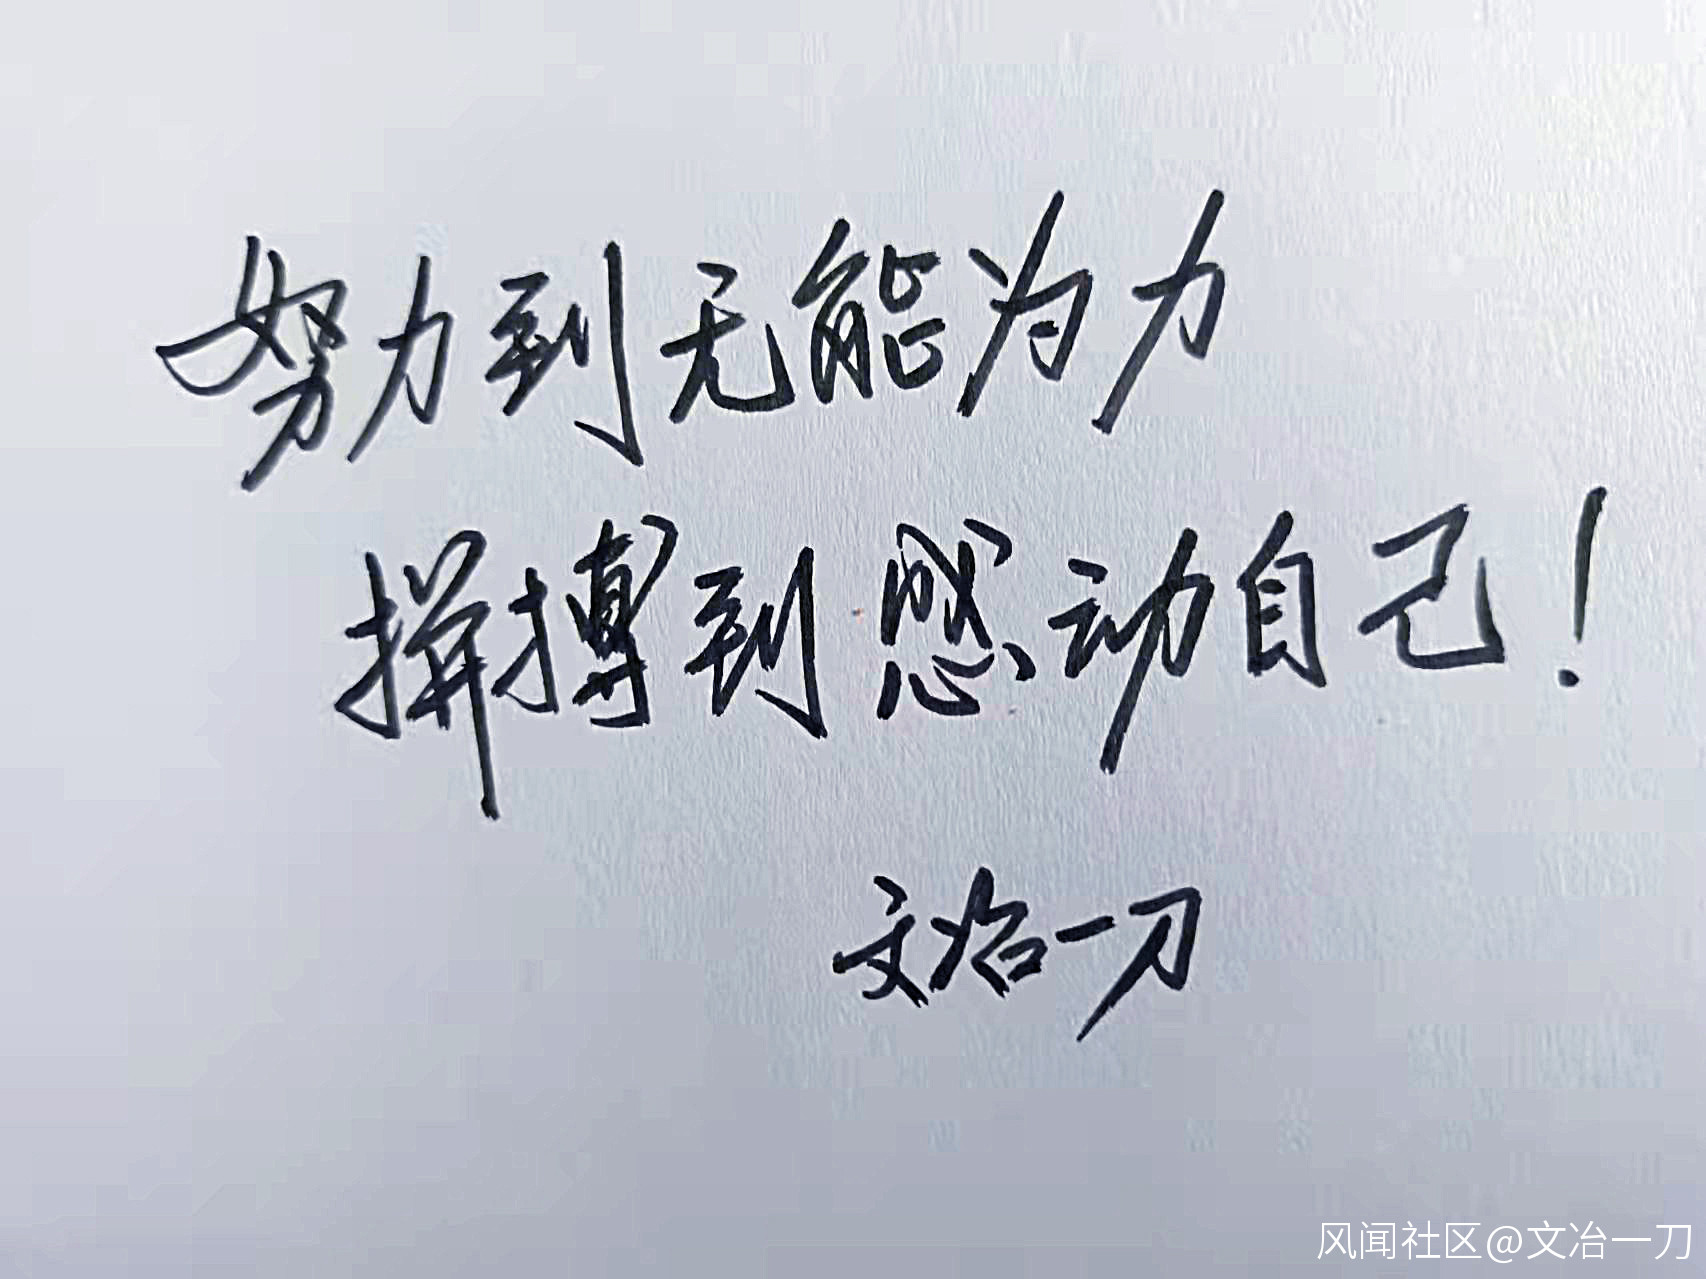 努力到无能为力
拼搏到感动自己！
文冶一刀
风闻社区@文冶一刀